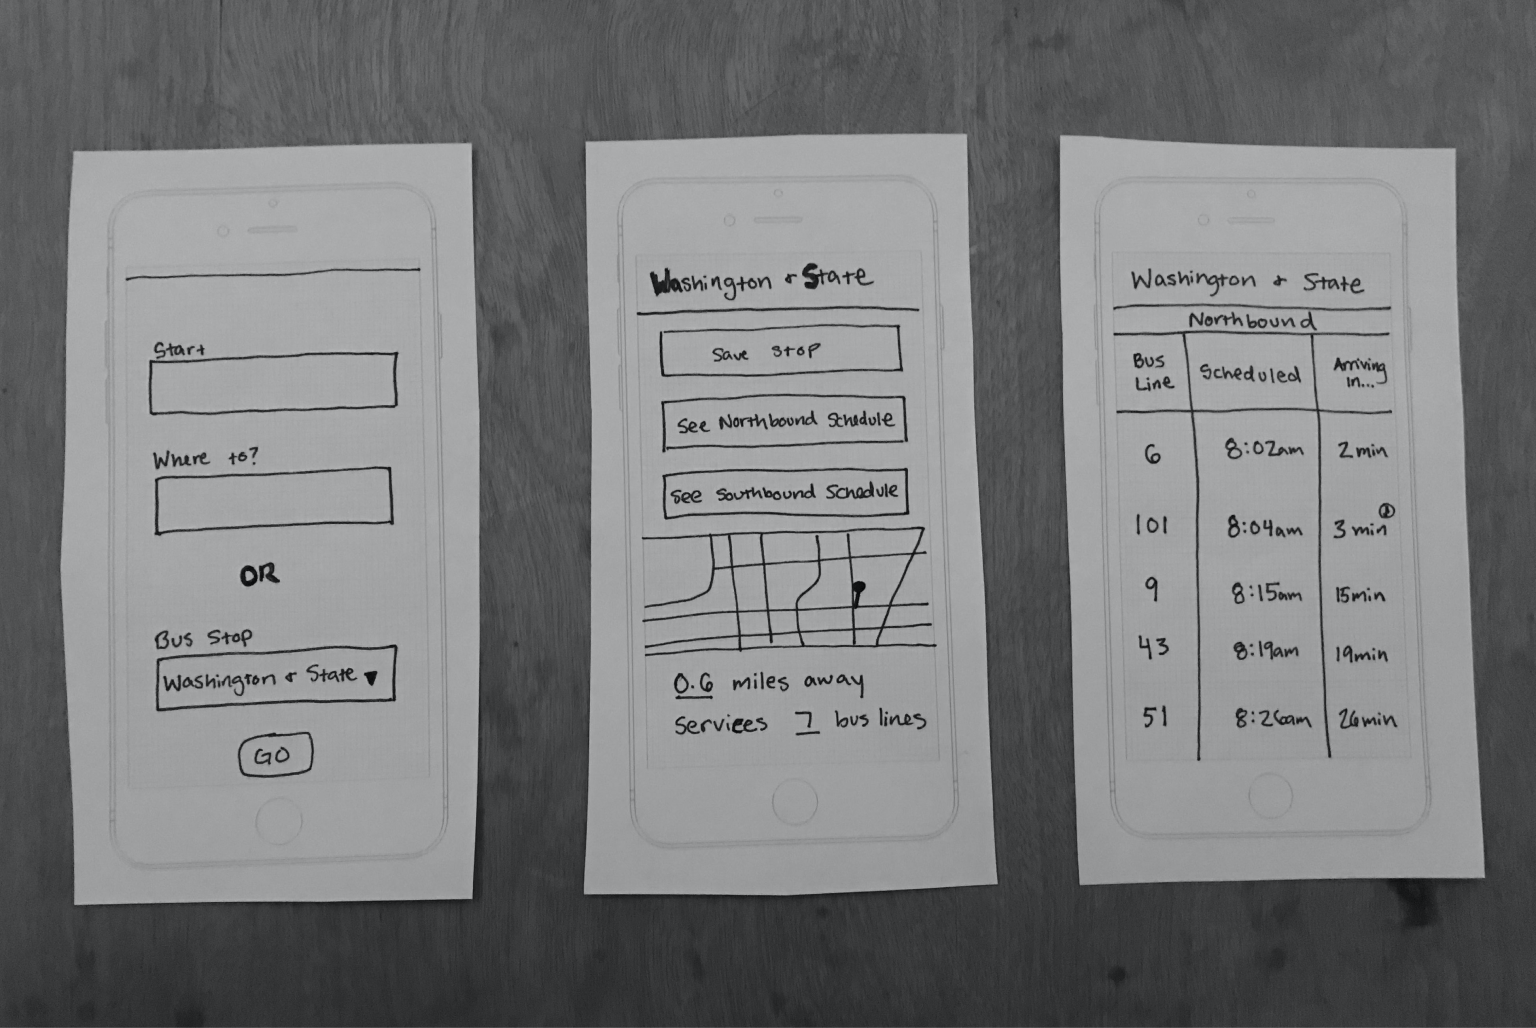 Start
Where to?
OR
Bus Stop
Washington & State ▼
GO
Washington & State
Save Stop
See Northbound Schedule
See Southbound Schedule
0.6 miles away
services 7 bus lines
Washington & State
Northbound
Bus Line Scheduled Arriving In...
6 8:02am 2 min
101 8:04am 3 min
9 8:15am 15min
43 8:19am 19min
51 8:26am 26min